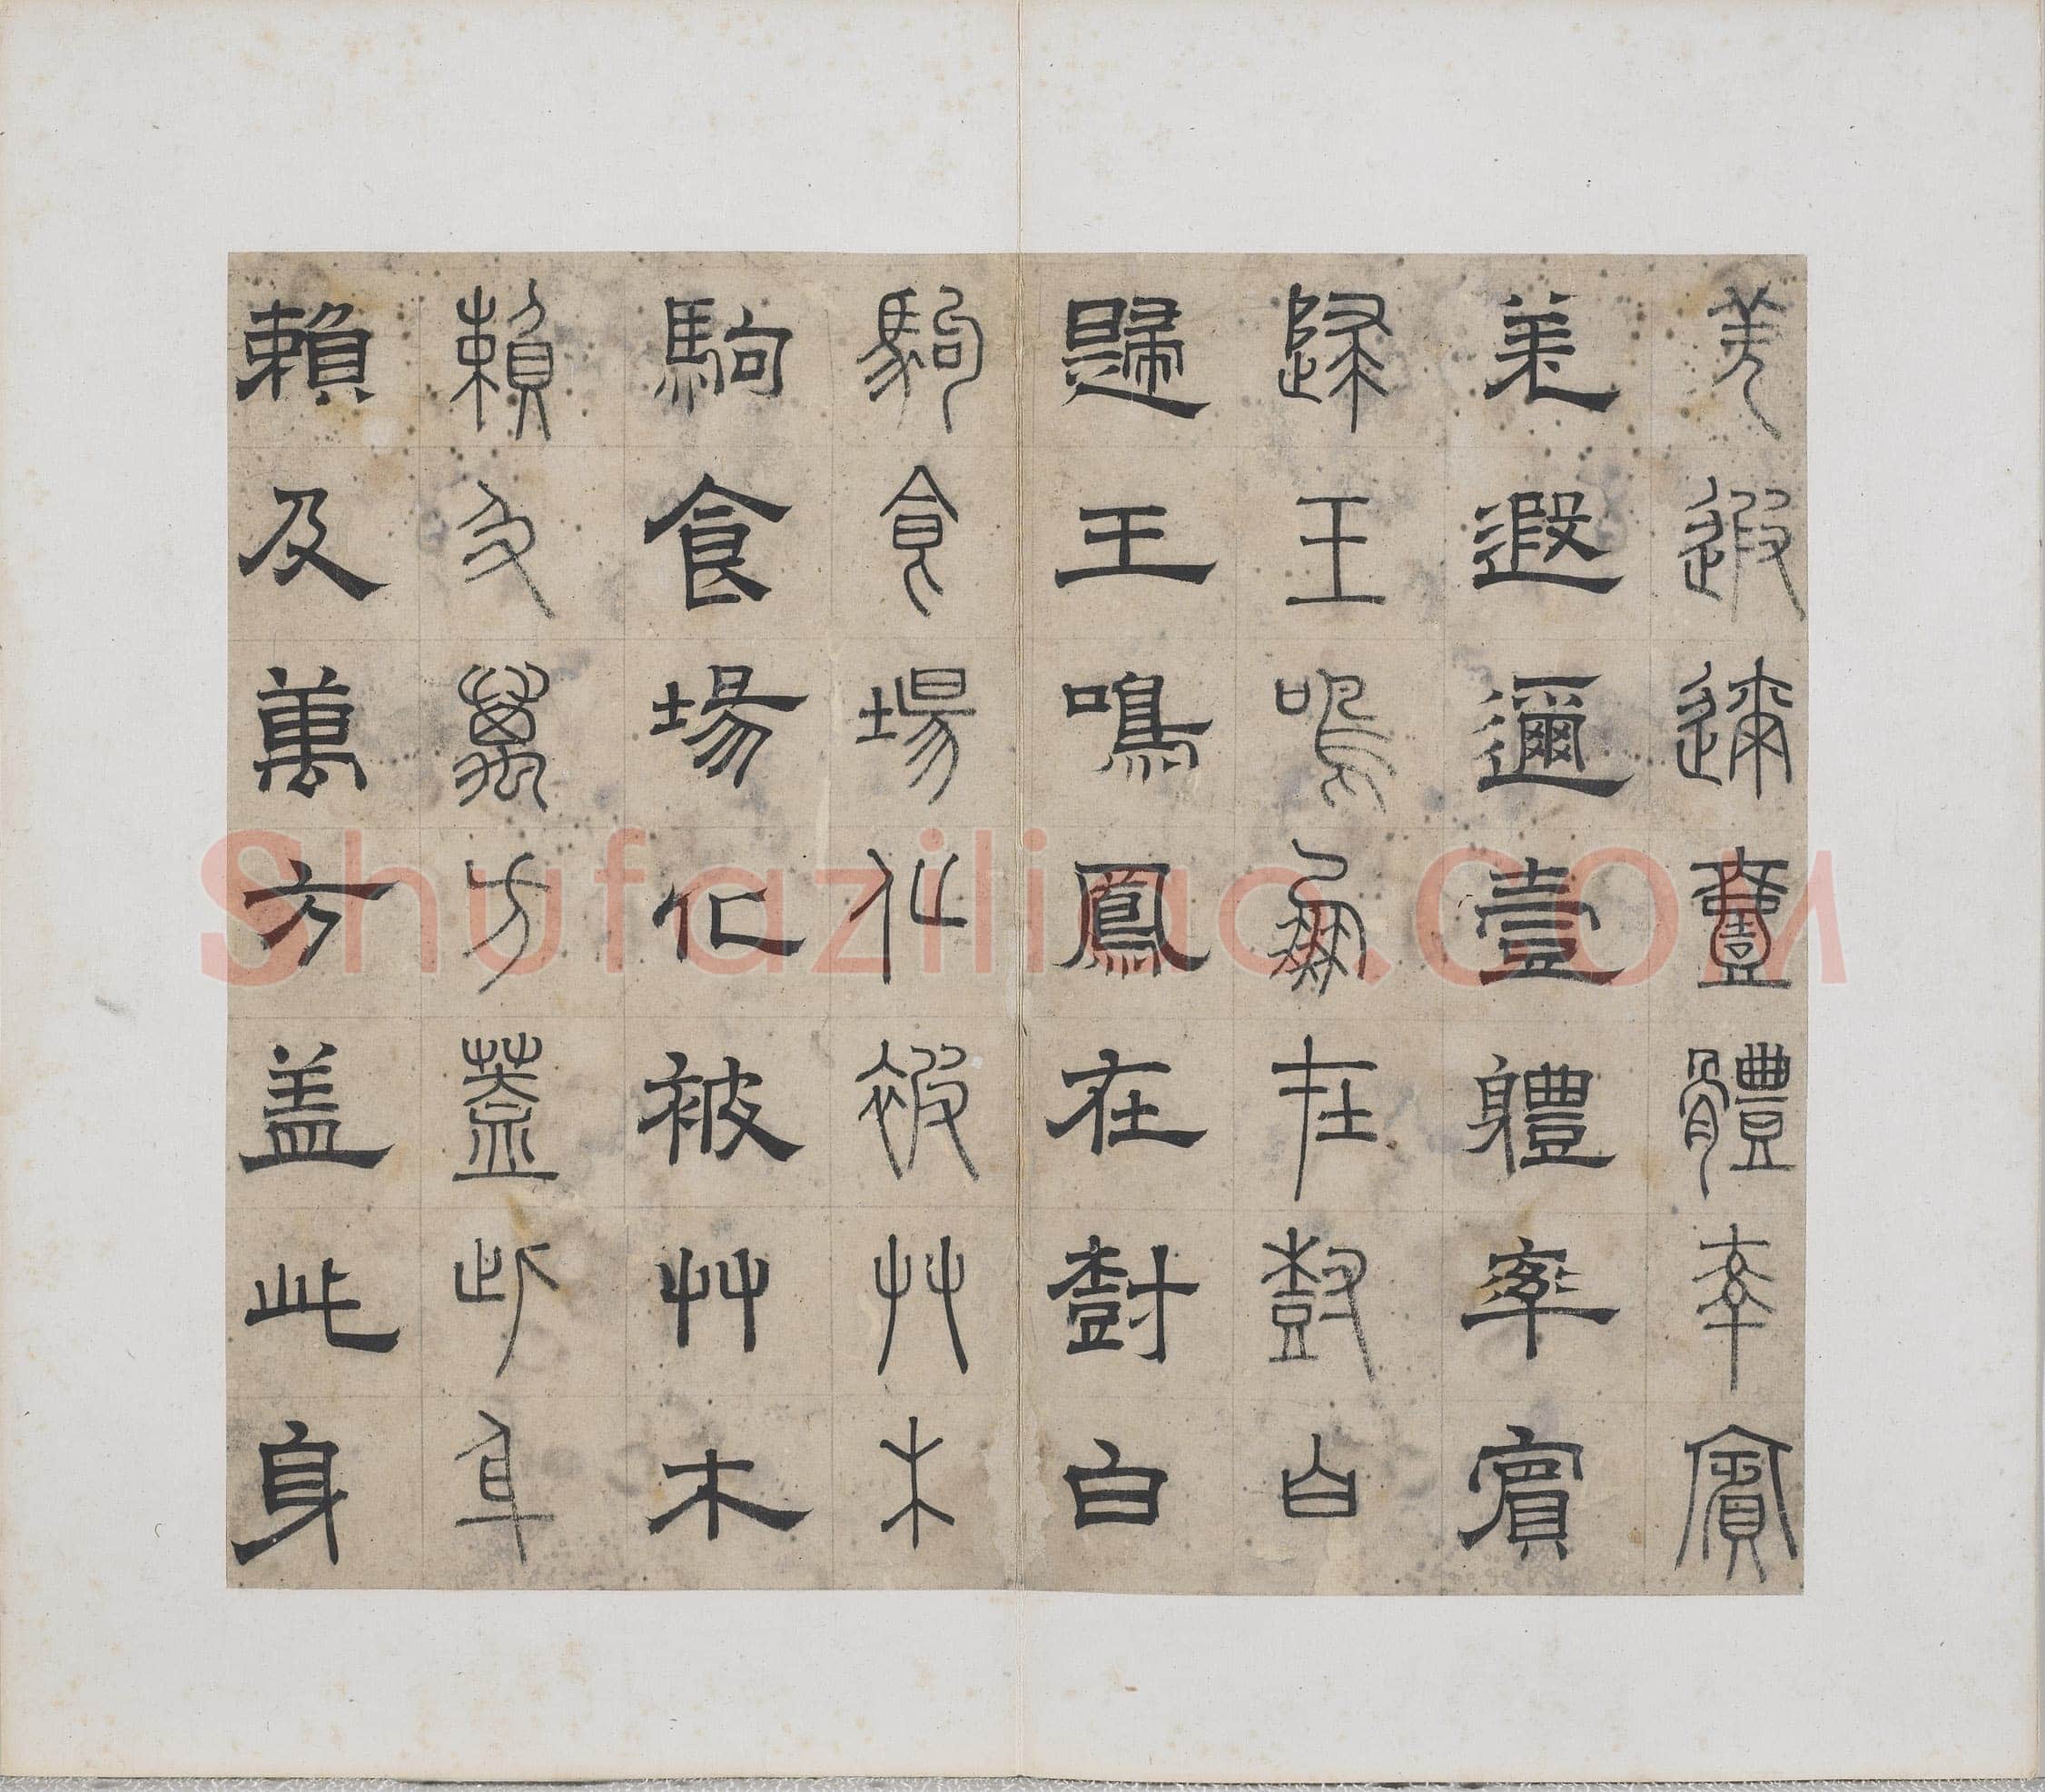 羌遐邇壹體率賓
羌遐邇壹體率賓
歸王鳴鳳在樹白
歸王鳴鳳在樹白
駒食場化被草木
駒食場化被艸木
賴及萬方蓋此身
賴及萬方盖此身
Shufaziliao.com